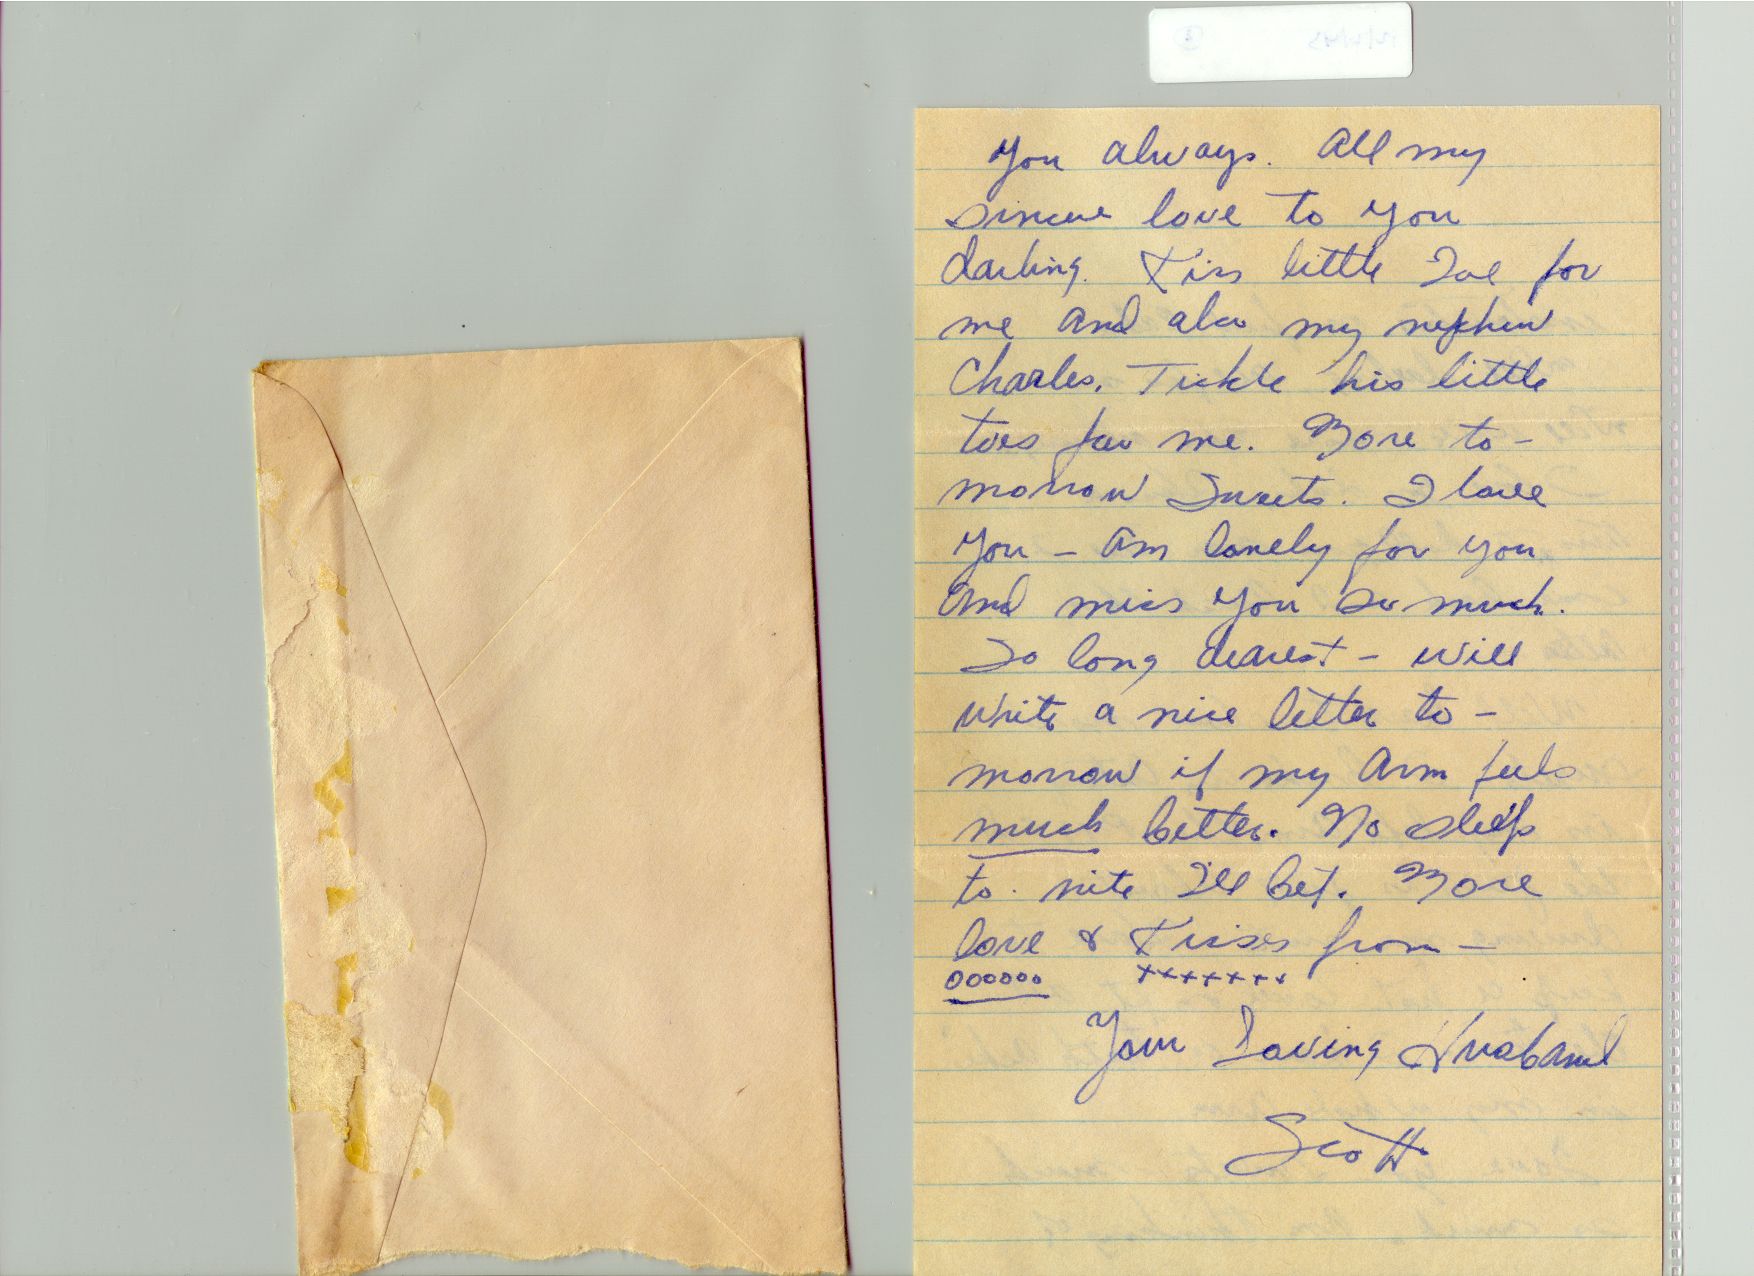 You always. All my
sincere love to you
darling. Kiss little Joe for
me and also my nephew
Charles. Tickle his little
toes for me. More to-
morrow Sweets. I love
you - am lonely for you
and miss you so much.
So long dearest - will
write a nice letter to-
morrow if my arm feels
much better. No sleep
to. nite I'll bet. More
love & Kisses from -
oooooo xxxxxxx
Your Loving Husband
Scott